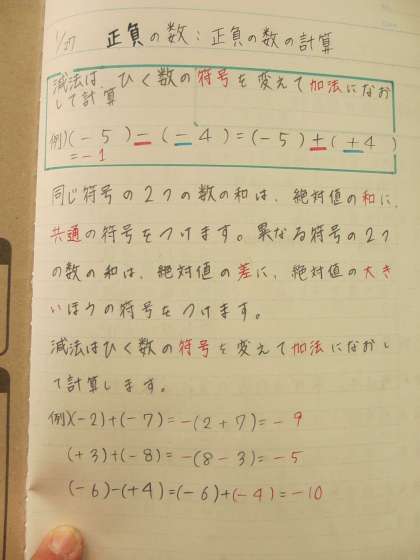 1/27 正負の数：正負の数の計算
減法は、ひく数の符号を変えて加法になお
して計算
例)(-5)-(-4)=(-5)+(+4)
=-1
同じ符号の2つの数の和は、絶対値の和に、
共通の符号をつけます。異なる符号の2つ
の数の和は、絶対値の差に、絶対値の大き
いほうの符号をつけます。
減法はひく数の符号を変えて加法になおし
て計算します。
例)(-2)+(-7)=-(2+7)=-9
(+3)+(-8)=-(8-3)=-5
(-6)-(+4)=(-6)+(-4)=-10